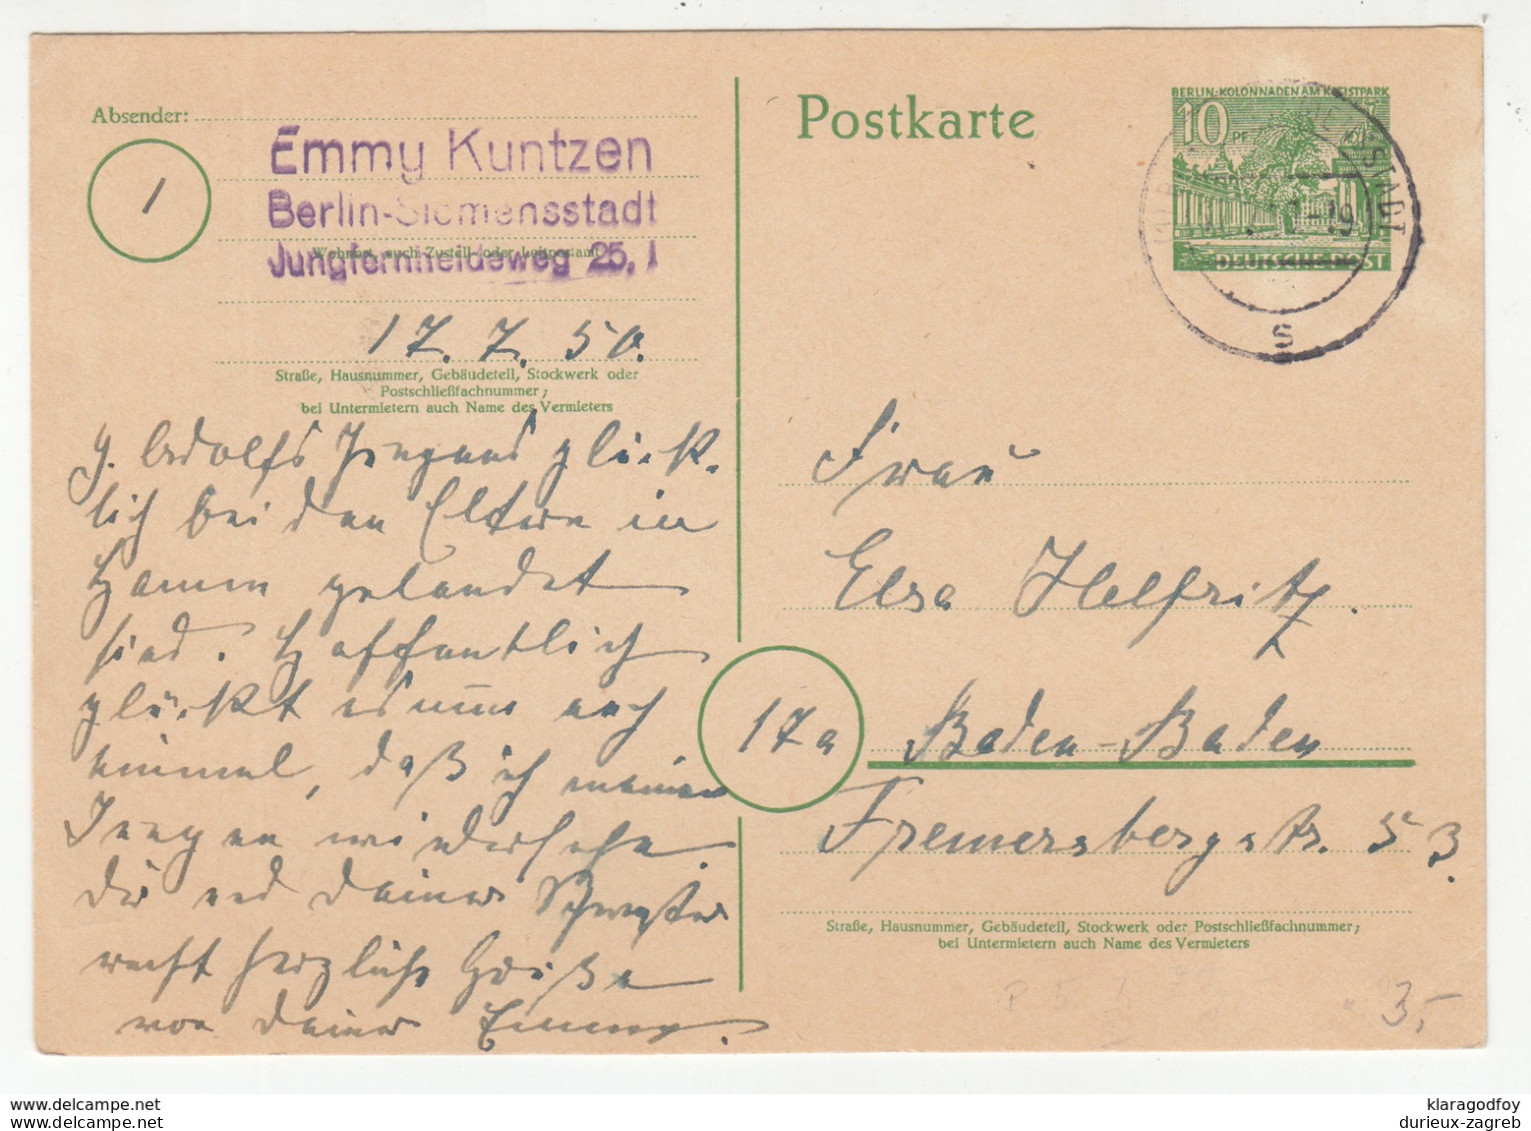 Absender:
1
Emmy Kuntzen
Berlin-Siemensstadt
Wohnort, auch Zustell- oder Leitpostamt
Jungfernheideweg 25, I
17. 7. 50.
Straße, Hausnummer, Gebäudeteil, Stockwerk oder
Postschließfachnummer;
bei Untermietern auch Name des Vermieters
Adolfs Jungens glück-
lich bei den Eltern in
Hamm gelandet
sind. Hoffentlich
glückt es uns noch
einmal, daß ich meinen
Jungen wiedersehe.
Dir und Deiner Schwester
recht herzliche Grüße
von Deiner Emmy.
Postkarte
BERLIN·KOLONNADEN AM KLEISTPARK
10 PF
DEUTSCHE POST
S
Frau
Elsa Helfritz.
17a Baden-Baden
Fremersbergstr. 53.
Straße, Hausnummer, Gebäudeteil, Stockwerk oder Postschließfachnummer;
bei Untermietern auch Name des Vermieters
P 5
3,-
www.delcampe.net
www.delcampe.net
klaragodfoy
durieux-zagreb